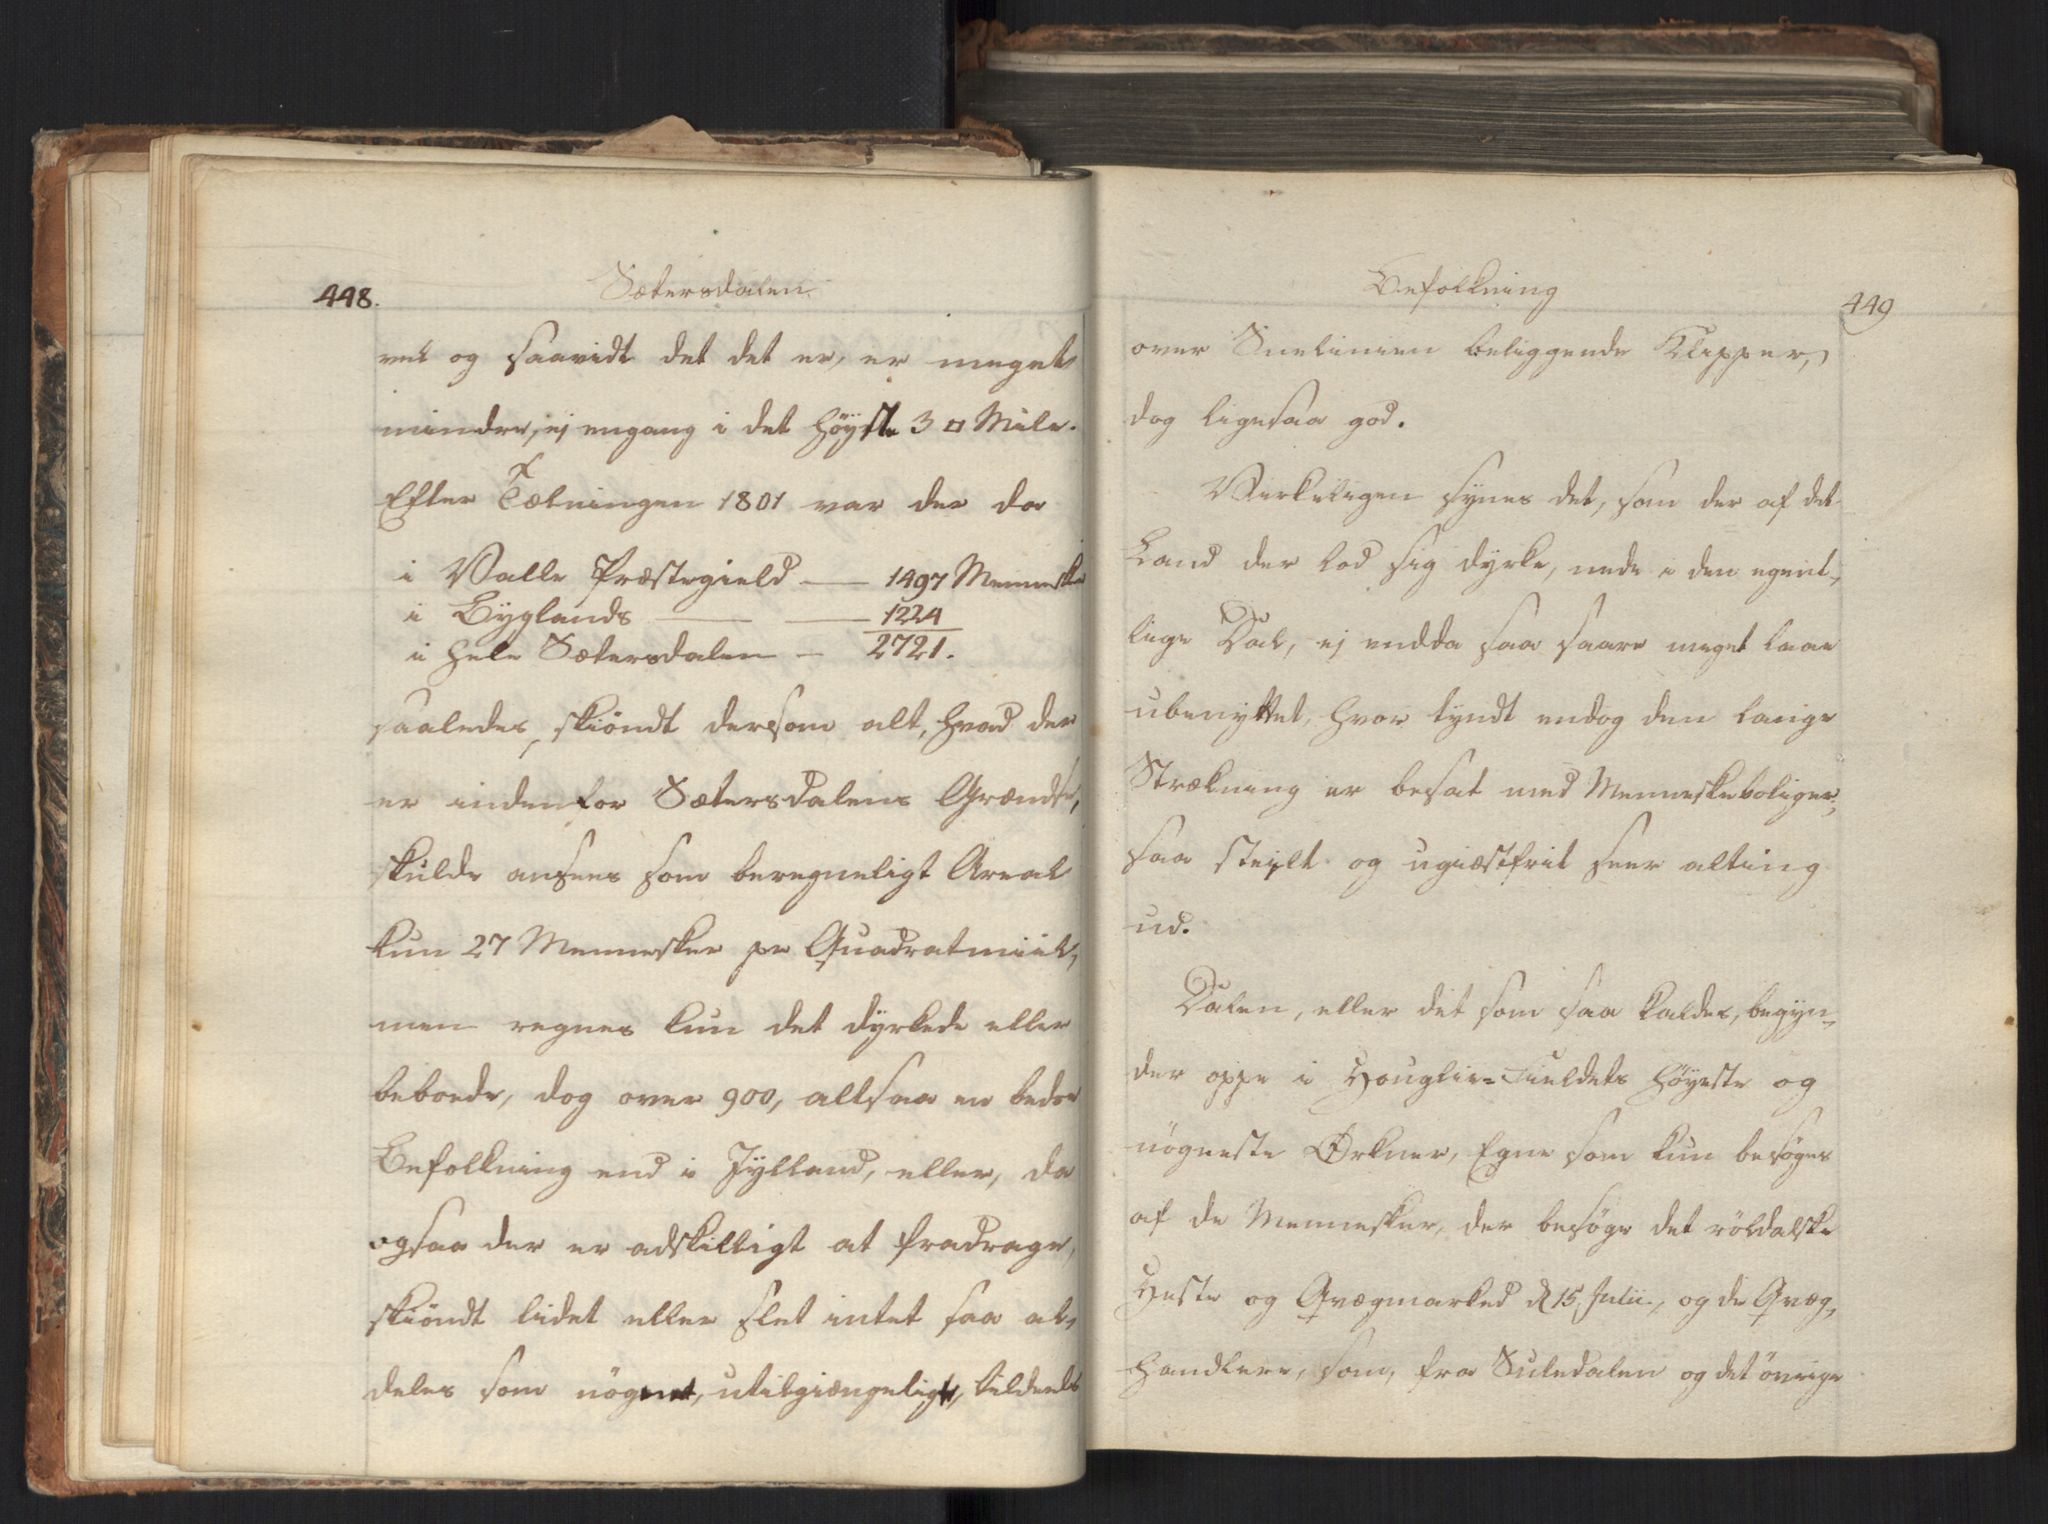 448.
Sætersdalen.
vel og saavidt det det er, er meget
mindre, ej engang i det høyste 3 □ Mile.
Efter Tælningen 1801 var der da
i Valle Præstegield — 1497 Menneske
i Byglands — — 1224
i hele Sætersdalen — 2721.
saaledes, skiöndt dersom alt, hvad der
er indenfor Sætersdalens Grændse,
skulde ansees som beregneligt Areal
kun 27 Mennesker pr Quadratmiil,
men regnes kun det dÿrkede eller
beboede, dog over 900, altsaa en bedre
Befolkning end i Jylland, eller, da
ogsaa der er adskilligt at fradrage,
skiöndt lidet eller slet intet saa al-
deles som nögent, utilgiængeligt, tildeels
Befolkning
449
over Sneelinien beliggende Klipper,
dog ligesaa god.
Virkeligen synes det, som der af det
Land der lod sig dyrke, nede i den egent-
lige Dal, ej endda saa saare meget laae
ubenyttet, hvor tyndt endog den lange
Strækning er besat med Menneskeboliger,
saa steilt og ugiæstfrit seer alting
ud.
Dalen, eller det som saa kaldes, begyn-
der oppe i Houglie-Fieldets höyeste og
nögneste Ørkner, Egne som kun besöges
af de Mennesker, der besöge det röldalske
Heste og Qvægmarked d 15 Julii, og de Qvæg-
handlere, som, fra Suledalen og det övrige